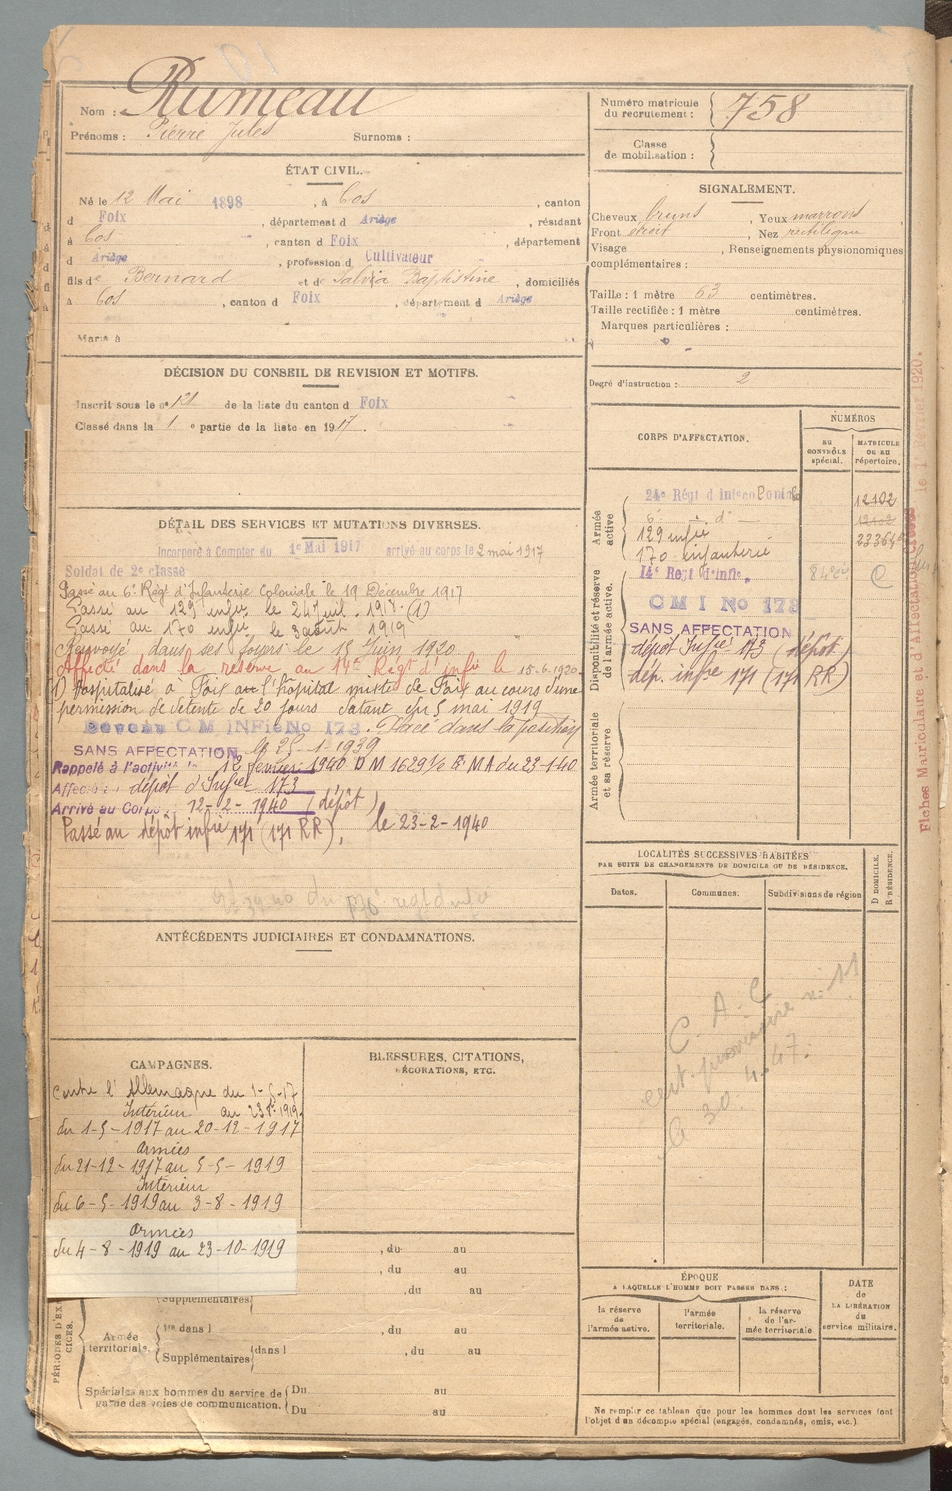 Nom : Rumeau
Prénoms : Pierre Jules Surnoms :
Numéro matricule du recrutement : 758
Classe de mobilisation :
ÉTAT CIVIL.
Né le 12 Mai 1898, à Cos, canton
d Foix, département d Ariège, résidant
à Cos, canton d Foix, département
d Ariège, profession d Cultivateur
fils de Bernard et de Salvia Baptistine, domiciliés
à Cos, canton d Foix, département d Ariège
Marié à
DÉCISION DU CONSEIL DE REVISION ET MOTIFS.
Inscrit sous le n° 121 de la liste du canton d Foix
Classé dans la 1 e partie de la liste en 1917.
DÉTAIL DES SERVICES ET MUTATIONS DIVERSES.
Incorporé à Compter du 1er Mai 1917 arrivé au corps le 2 mai 1917
Soldat de 2e classe
Passé au 6e Régt d'Infanterie Coloniale le 19 Décembre 1917
Passé au 129 infie le 24 Juil. 1918. (1)
Passé au 170 infie le 3 août 1919
Renvoyé dans ses foyers le 15 Juin 1920.
Affecté dans la reserve au 14e Régt d'infie le 15.6.1920.
1) Hospitalisé à Foix à l'hôpital mixte de Foix au cours d'une
permission de détente de 20 jours datant du 5 mai 1919
Devenu C M INFie No 173. Placé dans la position
SANS AFFECTATION le 25-1-1939
Rappelé à l'activité le 12 fevrier 1940 D M 1629 1/2 E.M.A du 23-1-40
Affecté : dépôt d'Infie 173
Arrivé au Corps : 12-2-1940 (dépôt)
Passé au dépôt infie 171 (171 RR), le 23-2-1940
ANTÉCÉDENTS JUDICIAIRES ET CONDAMNATIONS.
CAMPAGNES.
Contre l'Allemagne du 1-5-17
au 23 8e 1919
Intérieur
du 1-5-1917 au 20-12-1917
Armées
du 21-12-1917 au 5-5-1919
Intérieur
du 6-5-1919 au 3-8-1919
Armées
du 4-8-1919 au 23-10-1919
BLESSURES, CITATIONS,
DÉCORATIONS, ETC.
, du au
, du au
Supplémentaires , du au
PÉRIODES D'EX
CICES.
Armée territoriale.
1re dans l , du au
Supplémentaires dans l , du au
Spéciales aux hommes du service de
garde des voies de communication.
Du au
Du au
SIGNALEMENT.
Cheveux bruns, Yeux marrons,
Front étroit, Nez rectiligne
Visage , Renseignements physionomiques
complémentaires :
Taille : 1 mètre 63 centimètres.
Taille rectifiée : 1 mètre centimètres.
Marques particulières :
Degré d'instruction : 2
CORPS D'AFFECTATION.
NUMÉROS
AU CONTRÔLE spécial.
MATRICULE OU AU répertoire.
Armée active
24e Régt d'Infie Coloniale 12102
6e d° 12102
129 infie 23364
170 infanterie
Disponibilité et réserve de l'armée active.
14e Régt d'infie.
C M I No 173
SANS AFFECTATION
dépôt Infie 173 (dépôt)
dép. infie 171 (171 RR)
Armée territoriale et sa réserve
LOCALITÉS SUCCESSIVES HABITÉES
PAR SUITE DE CHANGEMENTS DE DOMICILE OU DE RÉSIDENCE.
Dates.
Communes.
Subdivisions de région
D DOMICILE.
R RÉSIDENCE.
C. A. C
cert. provisoire n: 11
30.4.47.
ÉPOQUE
A LAQUELLE L'HOMME DOIT PASSER DANS :
la réserve de l'armée active.
l'armée territoriale.
la réserve de l'armée territoriale
DATE de LA LIBÉRATION du service militaire.
Ne remplir ce tableau que pour les hommes dont les services font
l'objet d'un décompte spécial (engagés, condamnés, omis, etc.).
Fiches Matriculaire et d'Affectation le 1 février 1920.